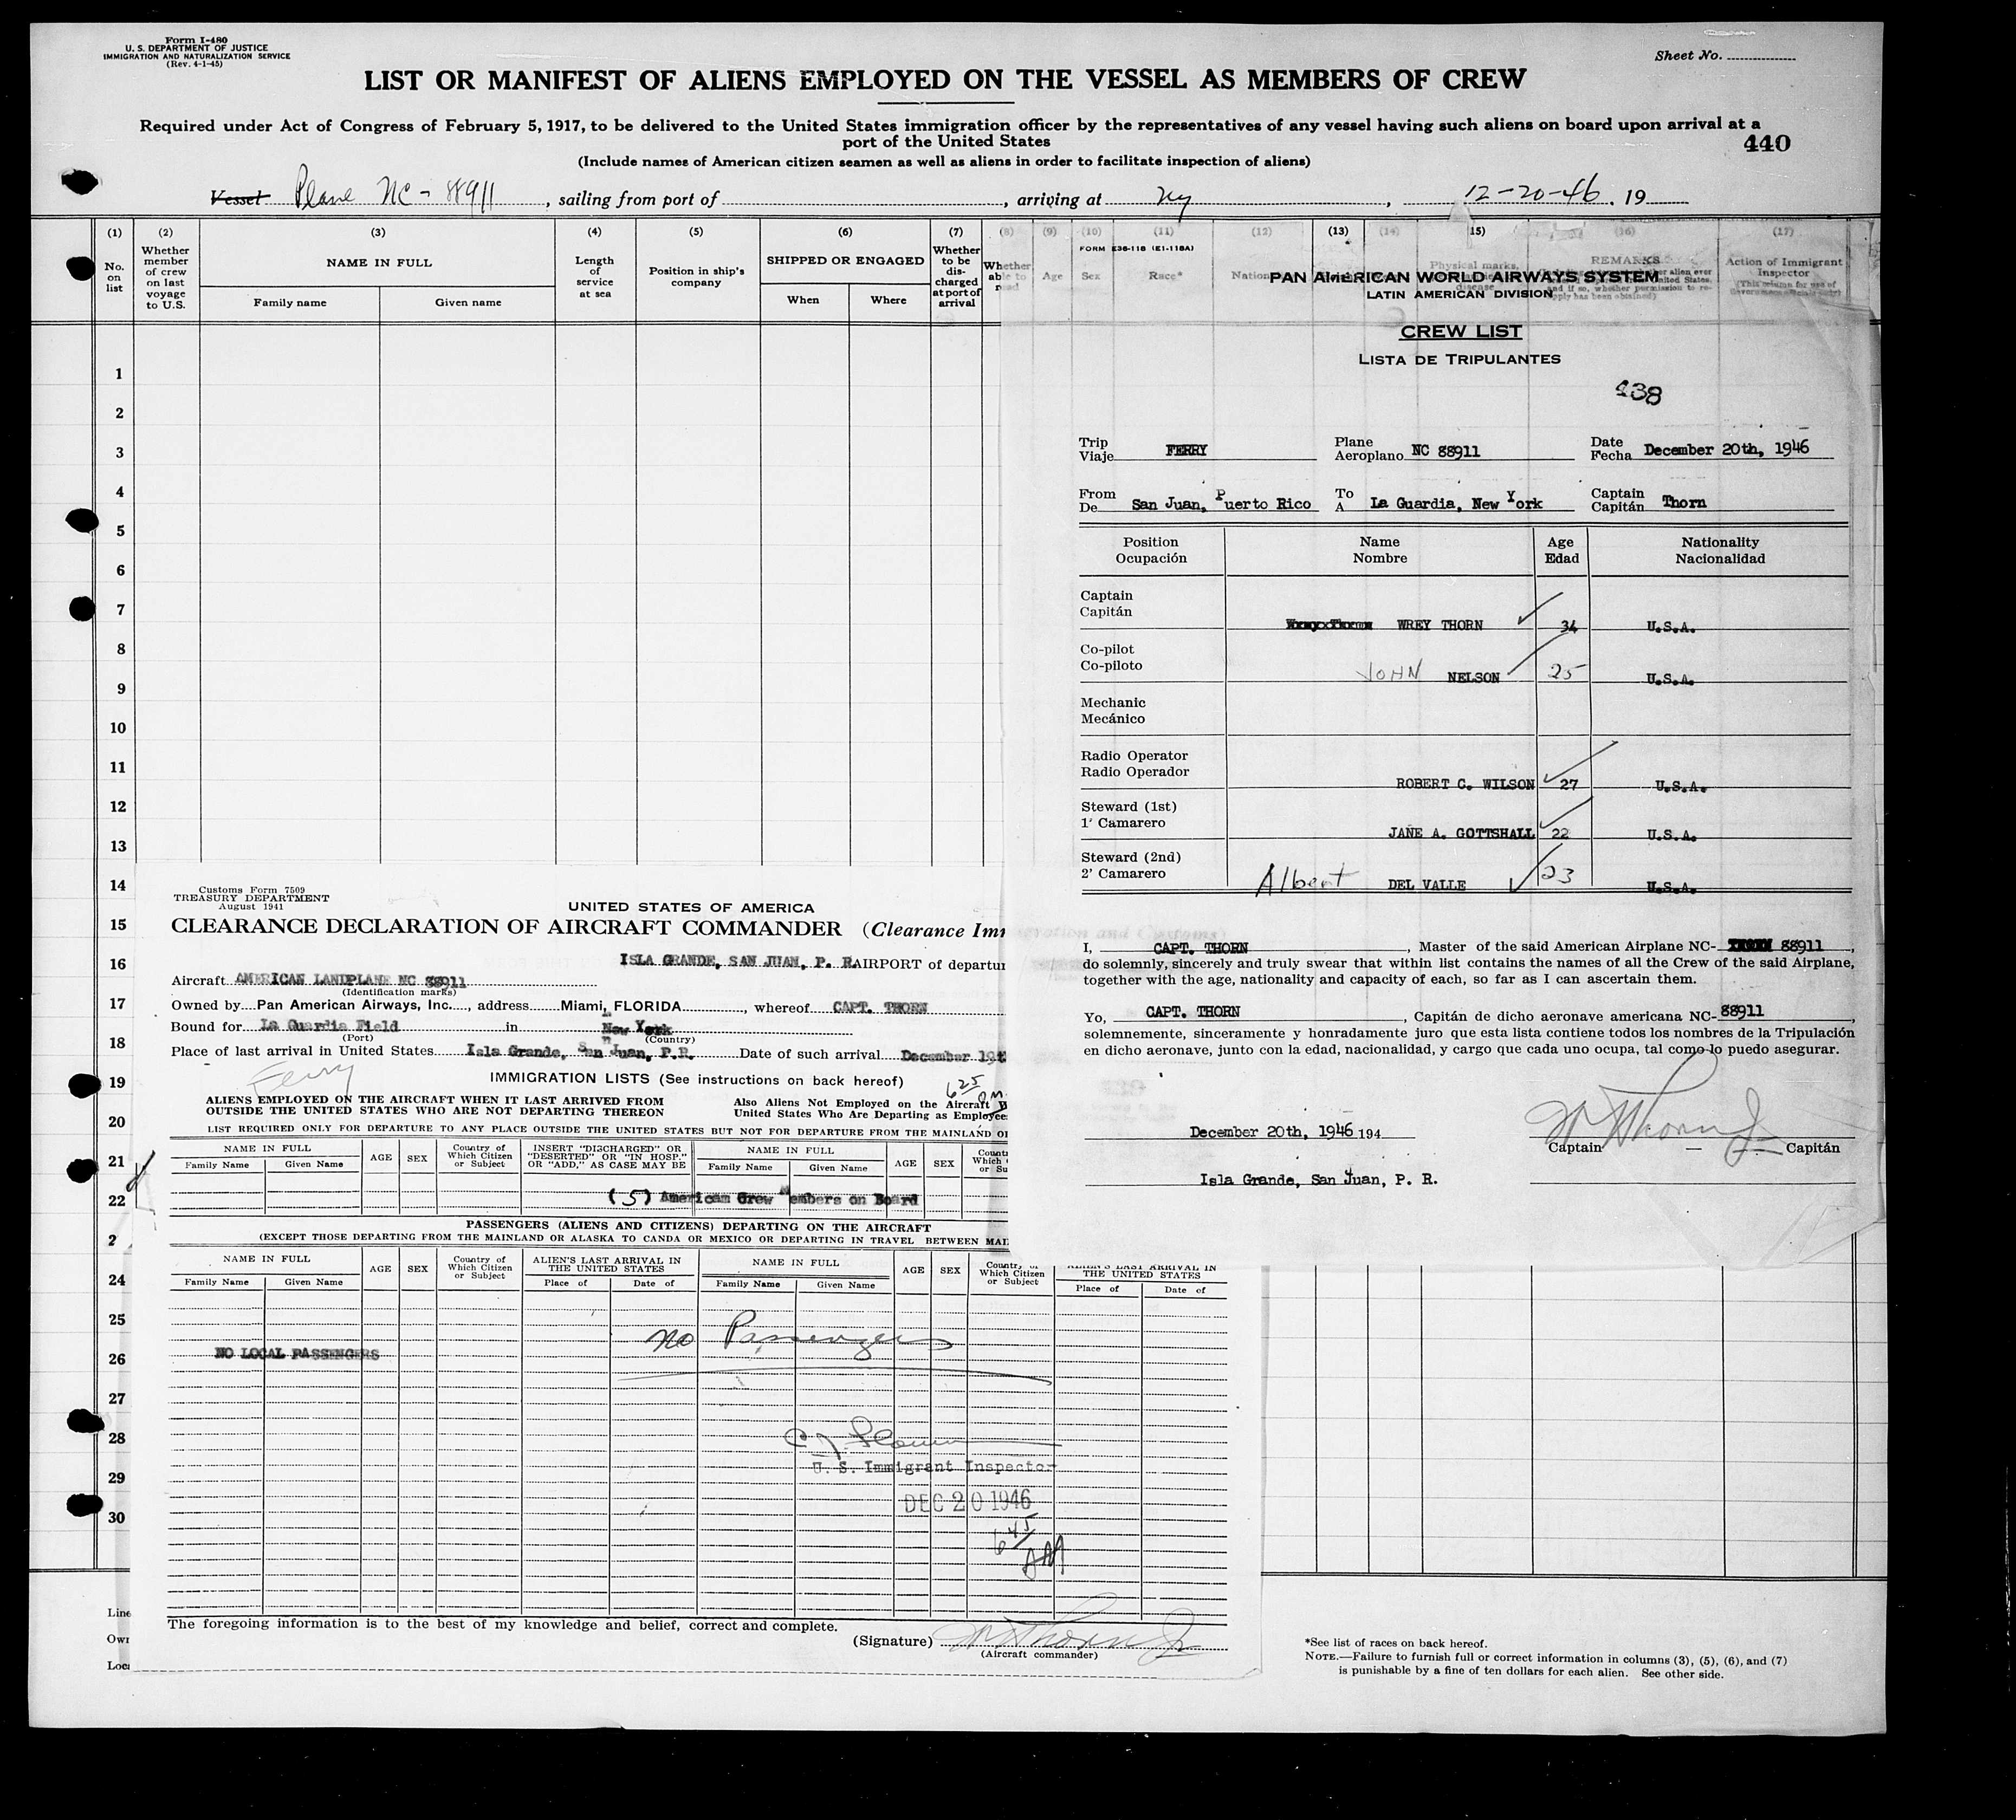 Form I-480
U. S. DEPARTMENT OF JUSTICE
IMMIGRATION AND NATURALIZATION SERVICE
(Rev. 4-1-45)
Sheet No.
LIST OR MANIFEST OF ALIENS EMPLOYED ON THE VESSEL AS MEMBERS OF CREW
Required under Act of Congress of February 5, 1917, to be delivered to the United States immigration officer by the representatives of any vessel having such aliens on board upon arrival at a
port of the United States
440
(Include names of American citizen seamen as well as aliens in order to facilitate inspection of aliens)
Vessel Plane NC - 88911, sailing from port of , arriving at Ny , 12-20-46. 19
(1) (2) (3) (4) (5) (6) (7) (8) (9) (10) (11) (12) (13) (14) (15) (16) (17)
No. on list
Whether member of crew on last voyage to U.S.
NAME IN FULL
Family name
Given name
Length of service at sea
Position in ship's company
SHIPPED OR ENGAGED
When
Where
Whether to be discharged at port of arrival
Whether able to read
Age
Sex
Race*
Physical marks,
disease
REMARKS
Action of Immigrant Inspector
1
2
3
4
5
6
7
8
9
10
11
12
13
14
15
16
17
18
19
20
21
22
2
24
25
26
27
28
29
30
FORM E36-118 (E1-118A)
PAN AMERICAN WORLD AIRWAYS SYSTEM
LATIN AMERICAN DIVISION
CREW LIST
LISTA DE TRIPULANTES
438
Trip Viaje FERRY
Plane Aeroplano NC 88911
Date Fecha December 20th, 1946
From De San Juan, Puerto Rico
To A La Guardia, New York
Captain Capitán Thorn
Position Ocupación
Name Nombre
Age Edad
Nationality Nacionalidad
Captain Capitán WREY THORN 34 U.S.A.
Co-pilot Co-piloto JOHN NELSON 25 U.S.A.
Mechanic Mecánico
Radio Operator Radio Operador ROBERT C. WILSON 27 U.S.A.
Steward (1st) 1' Camarero JANE A. GOTTSHALL 22 U.S.A.
Steward (2nd) 2' Camarero Albert DEL VALLE 23 U.S.A.
I, CAPT. THORN, Master of the said American Airplane NC- 88911,
do solemnly, sincerely and truly swear that within list contains the names of all the Crew of the said Airplane,
together with the age, nationality and capacity of each, so far as I can ascertain them.
Yo, CAPT. THORN, Capitán de dicho aeronave americana NC- 88911,
solemnemente, sinceramente y honradamente juro que esta lista contiene todos los nombres de la Tripulación
en dicho aeronave, junto con la edad, nacionalidad, y cargo que cada uno ocupa, tal como lo puedo asegurar.
December 20th, 1946 194
W Thorn Jr
Captain — Capitán
Isla Grande, San Juan, P. R.
Customs Form 7509
TREASURY DEPARTMENT
August 1941
UNITED STATES OF AMERICA
CLEARANCE DECLARATION OF AIRCRAFT COMMANDER (Clearance Imm
ISLA GRANDE, SAN JUAN, P. R. AIRPORT of departur
Aircraft AMERICAN LANDPLANE NC 88911
(Identification marks)
Owned by Pan American Airways, Inc., address Miami, FLORIDA, whereof CAPT. THORN
Bound for La Guardia Field in New York
(Port) (Country)
Place of last arrival in United States Isla Grande, San Juan, P.R. Date of such arrival December 19t
Ferry
IMMIGRATION LISTS (See instructions on back hereof)
6 25 PM
ALIENS EMPLOYED ON THE AIRCRAFT WHEN IT LAST ARRIVED FROM
OUTSIDE THE UNITED STATES WHO ARE NOT DEPARTING THEREON
Also Aliens Not Employed on the Aircraft W
United States Who Are Departing as Employee
LIST REQUIRED ONLY FOR DEPARTURE TO ANY PLACE OUTSIDE THE UNITED STATES BUT NOT FOR DEPARTURE FROM THE MAINLAND O
NAME IN FULL
Family Name
Given Name
AGE
SEX
Country of Which Citizen or Subject
INSERT "DISCHARGED" OR "DESERTED" OR "IN HOSP." OR "ADD," AS CASE MAY BE
NAME IN FULL
Family Name
Given Name
AGE
SEX
(5) American Crew Members on Board
PASSENGERS (ALIENS AND CITIZENS) DEPARTING ON THE AIRCRAFT
(EXCEPT THOSE DEPARTING FROM THE MAINLAND OR ALASKA TO CANDA OR MEXICO OR DEPARTING IN TRAVEL BETWEEN MAI
NAME IN FULL
Family Name
Given Name
AGE
SEX
Country of Which Citizen or Subject
ALIEN'S LAST ARRIVAL IN THE UNITED STATES
Place of
Date of
NAME IN FULL
Family Name
Given Name
AGE
SEX
Country of Which Citizen or Subject
ALIEN'S LAST ARRIVAL IN THE UNITED STATES
Place of
Date of
No Passengers
NO LOCAL PASSENGERS
U. S. Immigrant Inspector
DEC 20 1946
6 45
The foregoing information is to the best of my knowledge and belief, correct and complete.
(Signature) W Thorn Jr
(Aircraft commander)
Line
Own
Loca
*See list of races on back hereof.
NOTE.—Failure to furnish full or correct information in columns (3), (5), (6), and (7)
is punishable by a fine of ten dollars for each alien. See other side.